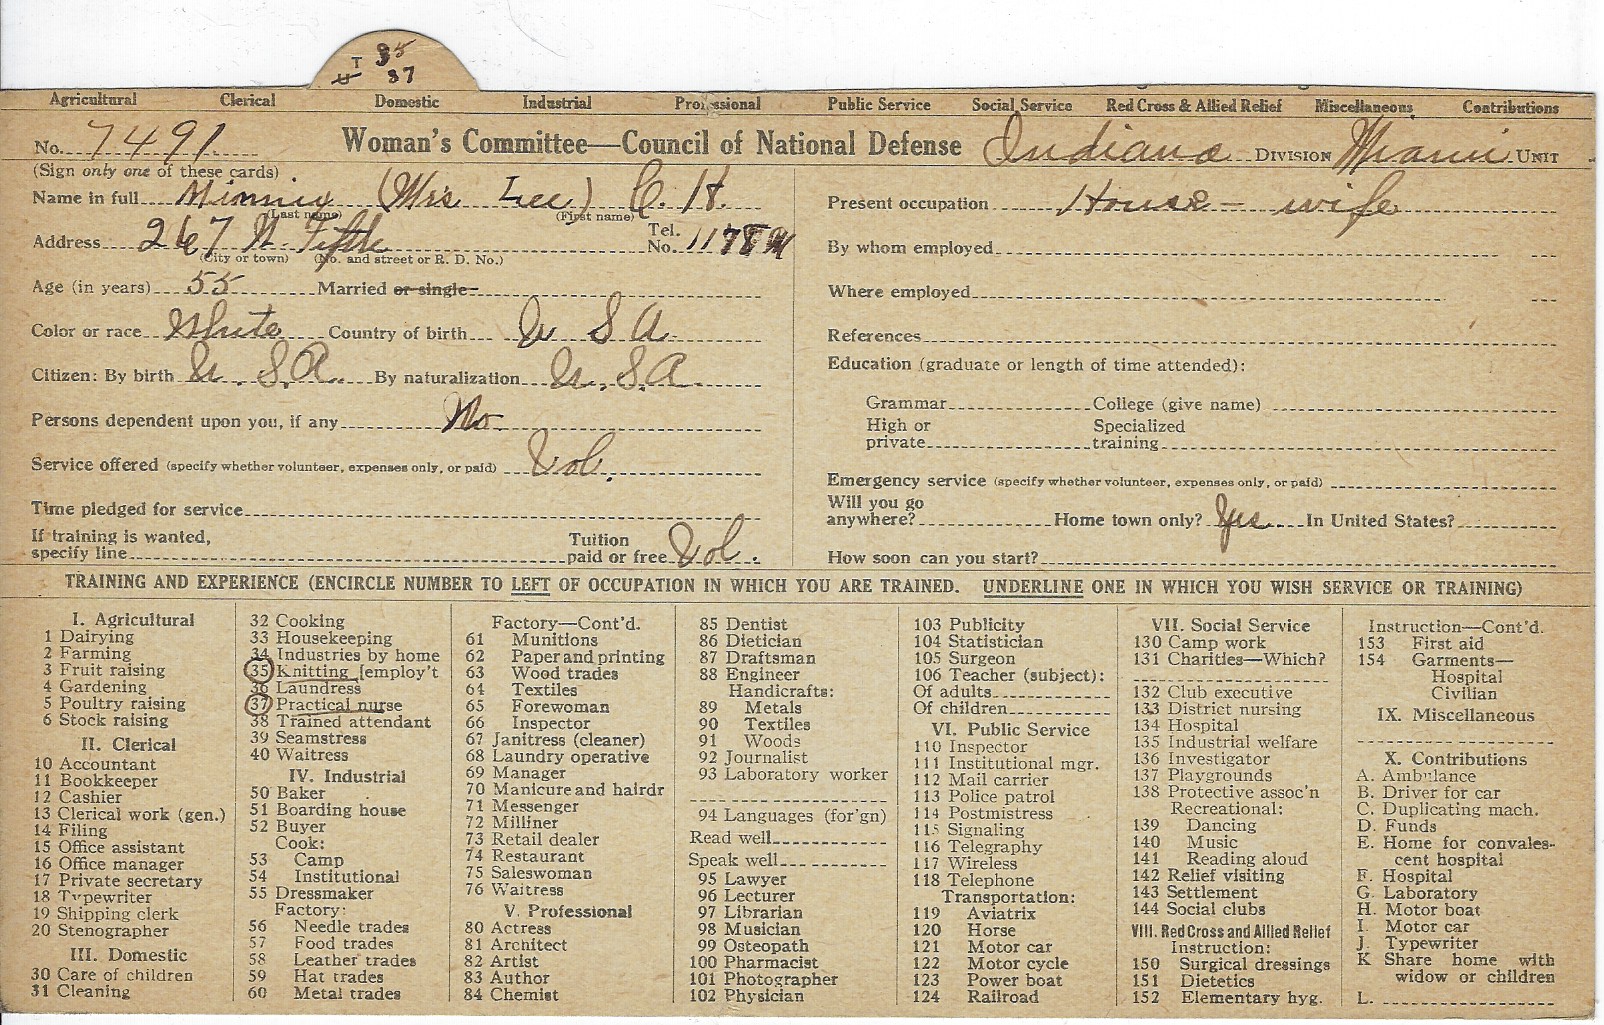 T 35
U 37
Agricultural Clerical Domestic Industrial Professional Public Service Social Service Red Cross & Allied Relief Miscellaneous Contributions
No. 7491 Woman's Committee—Council of National Defense Indiana DIVISION Miami UNIT
(Sign only one of these cards)
Name in full Minnix (Mrs Lee) C. H.
(Last name) (First name)
Address 267 W. Fifth Tel. No. 1178 M
(City or town) (No. and street or R. D. No.)
Age (in years) 55 Married or single
Color or race White Country of birth U S A
Citizen: By birth U. S. A. By naturalization U. S. A.
Persons dependent upon you, if any No
Service offered (specify whether volunteer, expenses only, or paid) Vol.
Time pledged for service
If training is wanted, specify line Tuition paid or free Vol.
Present occupation House-wife
By whom employed
Where employed
References
Education (graduate or length of time attended):
Grammar College (give name)
High or private Specialized training
Emergency service (specify whether volunteer, expenses only, or paid)
Will you go anywhere? Home town only? Yes In United States?
How soon can you start?
TRAINING AND EXPERIENCE (ENCIRCLE NUMBER TO LEFT OF OCCUPATION IN WHICH YOU ARE TRAINED. UNDERLINE ONE IN WHICH YOU WISH SERVICE OR TRAINING)
I. Agricultural
1 Dairying
2 Farming
3 Fruit raising
4 Gardening
5 Poultry raising
6 Stock raising
II. Clerical
10 Accountant
11 Bookkeeper
12 Cashier
13 Clerical work (gen.)
14 Filing
15 Office assistant
16 Office manager
17 Private secretary
18 Typewriter
19 Shipping clerk
20 Stenographer
III. Domestic
30 Care of children
31 Cleaning
32 Cooking
33 Housekeeping
34 Industries by home
35 Knitting [employ't
36 Laundress
37 Practical nurse
38 Trained attendant
39 Seamstress
40 Waitress
IV. Industrial
50 Baker
51 Boarding house
52 Buyer
Cook:
53 Camp
54 Institutional
55 Dressmaker
Factory:
56 Needle trades
57 Food trades
58 Leather trades
59 Hat trades
60 Metal trades
Factory—Cont'd.
61 Munitions
62 Paper and printing
63 Wood trades
64 Textiles
65 Forewoman
66 Inspector
67 Janitress (cleaner)
68 Laundry operative
69 Manager
70 Manicure and hairdr
71 Messenger
72 Milliner
73 Retail dealer
74 Restaurant
75 Saleswoman
76 Waitress
V. Professional
80 Actress
81 Architect
82 Artist
83 Author
84 Chemist
85 Dentist
86 Dietician
87 Draftsman
88 Engineer
Handicrafts:
89 Metals
90 Textiles
91 Woods
92 Journalist
93 Laboratory worker
94 Languages (for'gn)
Read well
Speak well
95 Lawyer
96 Lecturer
97 Librarian
98 Musician
99 Osteopath
100 Pharmacist
101 Photographer
102 Physician
103 Publicity
104 Statistician
105 Surgeon
106 Teacher (subject):
Of adults
Of children
VI. Public Service
110 Inspector
111 Institutional mgr.
112 Mail carrier
113 Police patrol
114 Postmistress
115 Signaling
116 Telegraphy
117 Wireless
118 Telephone
Transportation:
119 Aviatrix
120 Horse
121 Motor car
122 Motor cycle
123 Power boat
124 Railroad
VII. Social Service
130 Camp work
131 Charities—Which?
132 Club executive
133 District nursing
134 Hospital
135 Industrial welfare
136 Investigator
137 Playgrounds
138 Protective assoc'n
Recreational:
139 Dancing
140 Music
141 Reading aloud
142 Relief visiting
143 Settlement
144 Social clubs
VIII. Red Cross and Allied Relief
Instruction:
150 Surgical dressings
151 Dietetics
152 Elementary hyg.
Instruction—Cont'd.
153 First aid
154 Garments—
Hospital
Civilian
IX. Miscellaneous
X. Contributions
A. Ambulance
B. Driver for car
C. Duplicating mach.
D. Funds
E. Home for convales-
cent hospital
F. Hospital
G. Laboratory
H. Motor boat
I. Motor car
J. Typewriter
K Share home with
widow or children
L.